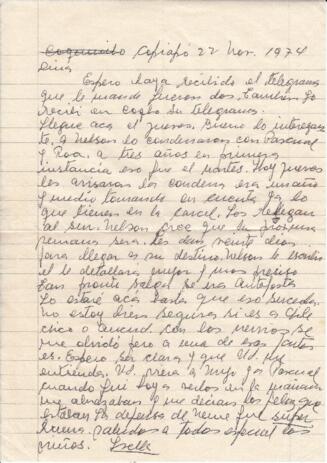 Coquimbo Copiapó 22 Nov. 1974
Espero haya recibido el telegrama
que le mandé fueron dos. También yo
recibí en Coqbo su telegrama.
Llegué acá el jueves. Bueno lo interesan
te, a Nelson lo condenaron con Pascual
y Roa. a tres años en primera
instancia eso fue el martes. Hoy jueves
les avisaron la condena era un año
y medio tomando en cuenta ya lo
que tienen en la cárcel. Los relegan
al sur. Nelson cree que la próxima
semana será. les dan veinte días
para llegar a su destino. Nelson le escribe
el le detallará mejor y más preciso
tan pronto salga
Lo estaré acá hasta que eso suceda.
no estoy bien segura si es a Chile
chico o Ancud. con los nervios se
me olvidó pero a una de esas partes
es. Espero ser clara y que Ud. me
entienda. Ud. viera a Hugo y a Pascual
cuando fui hoy a verlos en la mañana
me abrazaban y me decían lo feliz que
estaban. La defensa de Neme fue super
buena. saludos a todos especial los
niños.